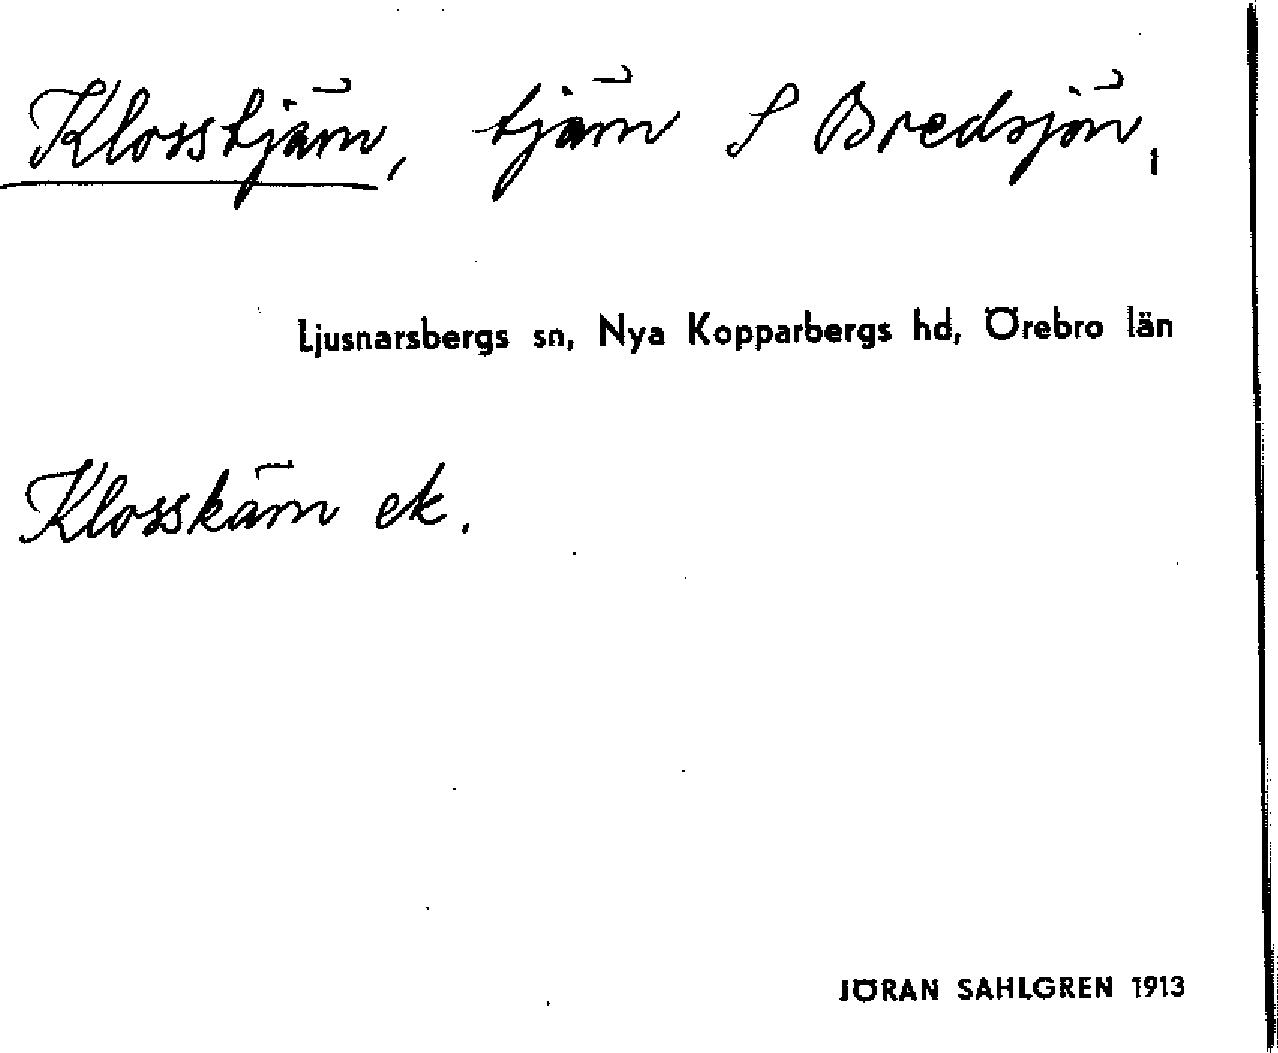 Klosstjärn, tjärn S Bredsjön,
Ljusnarsbergs sn, Nya Kopparbergs hd, Örebro län
Klosskärn ek.
JÖRAN SAHLGREN 1913